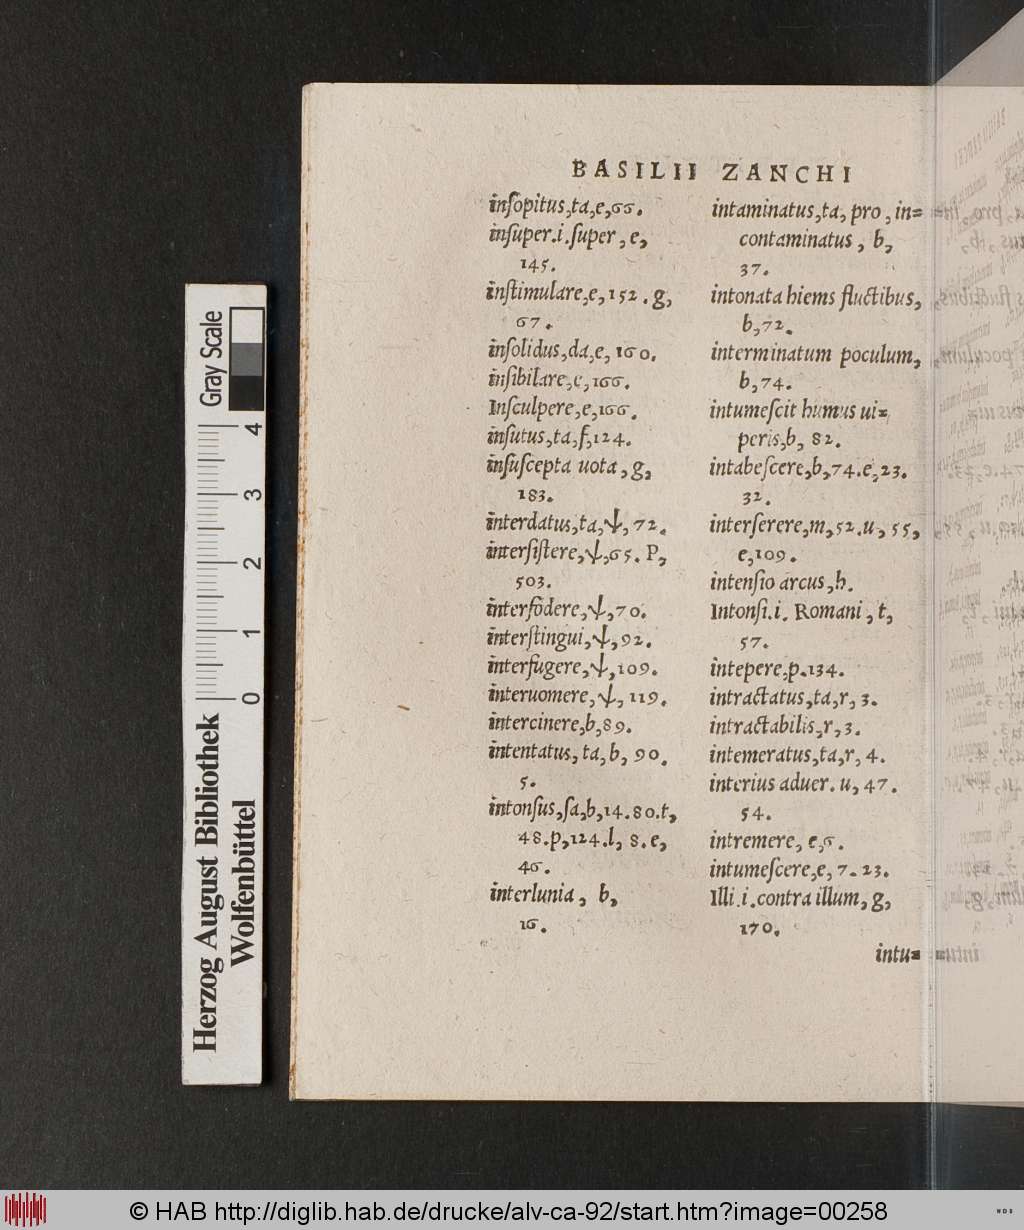 BASILII ZANCHI
inſopitus,ta,e,66.
inſuper.i.ſuper, e,
145.
inſtimulare,e,152. g,
67.
inſolidus,da,e, 160.
inſibilare,e,166.
Inſculpere,e,166.
inſutus,ta,f,124.
inſuſcepta uota, g,
183.
interdatus,ta,ψ, 72.
interſiſtere,ψ,65. P,
503.
interfodere,ψ,70.
interſtingui,ψ,92.
interfugere,ψ,109.
interuomere,ψ, 119.
intercinere,b,89.
intentatus, ta, b, 90.
5.
intonſus,ſa,b,14.80.t,
48.p,124.l, 8.e,
46.
interlunia, b,
16.
intaminatus,ta, pro, in=
contaminatus, b,
37.
intonata hiems fluctibus,
b,72.
interminatum poculum,
b,74.
intumeſcit humus ui=
peris,b, 82.
intabeſcere,b,74.e,23.
32.
interſerere,m,52.u, 55,
e,109.
intenſio arcus,h.
Intonſi.i. Romani, t,
57.
intepere,p.134.
intractatus,ta,r, 3.
intractabilis,r,3.
intemeratus,ta,r, 4.
interius aduer. u, 47.
54.
intremere, e,6.
intumeſcere,e, 7.23.
Illi.i.contra illum, g,
170.
intu=
Gray Scale
4 3 2 1 0
Herzog August Bibliothek
Wolfenbüttel
© HAB http://diglib.hab.de/drucke/alv-ca-92/start.htm?image=00258